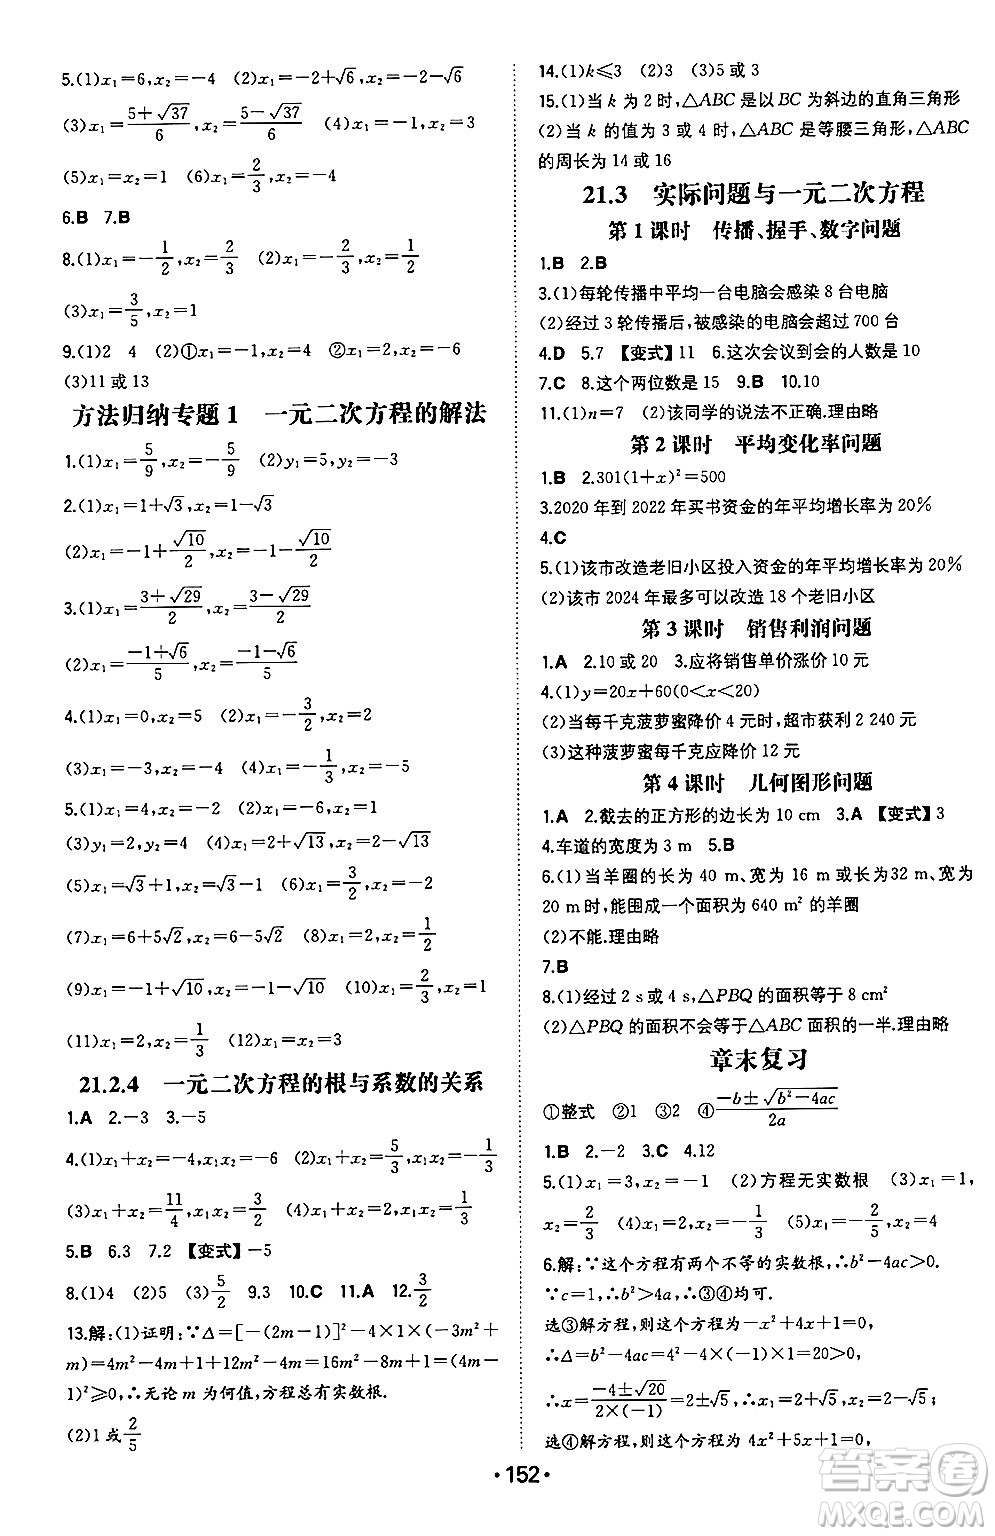 5.(1)x₁=6,x₂=-4 (2)x₁=-2+√6,x₂=-2-√6
(3)x₁=(5+√37)/6,x₂=(5-√37)/6 (4)x₁=-1,x₂=3
(5)x₁=x₂=1 (6)x₁=2/3,x₂=-4
6.B 7.B
8.(1)x₁=-1/2,x₂=2/3 (2)x₁=-6/5,x₂=1/2
(3)x₁=3/5,x₂=1
9.(1)2 4 (2)①x₁=-1,x₂=4 ②x₁=2,x₂=-6
(3)11 或 13
方法归纳专题 1 一元二次方程的解法
1.(1)x₁=5/9,x₂=-5/9 (2)y₁=5,y₂=-3
2.(1)x₁=1+√3,x₂=1-√3
(2)x₁=-1+√10/2,x₂=-1-√10/2
3.(1)x₁=(3+√29)/2,x₂=(3-√29)/2
(2)x₁=(-1+√6)/5,x₂=(-1-√6)/5
4.(1)x₁=0,x₂=5 (2)x₁=-2/3,x₂=2
(3)x₁=-3,x₂=4 (4)x₁=-1/3,x₂=-5
5.(1)x₁=4,x₂=-2 (2)x₁=-6,x₂=1
(3)y₁=-2,y₂=4 (4)x₁=2+√13,x₂=2-√13
(5)x₁=√3+1,x₂=√3-1 (6)x₁=-2/3,x₂=-2
(7)x₁=6+5√2,x₂=6-5√2 (8)x₁=1,x₂=1/2
(9)x₁=-1+√10,x₂=-1-√10 (10)x₁=2/5,x₂=1
(11)x₁=2,x₂=1/3 (12)x₁=x₂=3
21.2.4 一元二次方程的根与系数的关系
1.A 2.-3 3.-5
4.(1)x₁+x₂=-4,x₁x₂=-6 (2)x₁+x₂=5/3,x₁x₂=-1/3
(3)x₁+x₂=11/4,x₁x₂=3/2 (4)x₁+x₂=0,x₁x₂=-2/3
5.B 6.3 7.2 【变式】-5
8.(1)4 (2)5 (3)5/2 9.3 10.C 11.A 12.3/2
13.解:(1)证明:∵Δ=[-(2m-1)]²-4×1×(-3m²+
m)=4m²-4m+1+12m²-4m=16m²-8m+1=(4m-
1)²≥0,∴无论 m 为何值,方程总有实数根.
(2)1 或2/5
14.(1)k≤3 (2)3 (3)5 或 3
15.(1)当 k 为 2 时,△ABC 是以 BC 为斜边的直角三角形
(2)当 k 的值为 3 或 4 时,△ABC 是等腰三角形,△ABC
的周长为 14 或 16
21.3 实际问题与一元二次方程
第 1 课时 传播、握手、数字问题
1.B 2.B
3.(1)每轮传播中平均一台电脑会感染 8 台电脑
(2)经过 3 轮传播后,被感染的电脑会超过 700 台
4.D 5.7 【变式】11 6.这次会议到会的人数是 10
7.C 8.这个两位数是 15 9.B 10.10
11.(1)n=7 (2)该同学的说法不正确.理由略
第 2 课时 平均变化率问题
1.B 2.301(1+x)²=500
3.2020 年到 2022 年买书资金的年平均增长率为 20%
4.C
5.(1)该市改造老旧小区投入资金的年平均增长率为 20%
(2)该市 2024 年最多可以改造 18 个老旧小区
第 3 课时 销售利润问题
1.A 2.10 或 20 3.应将销售单价涨价 10 元
4.(1)y=20x+60(0<x<20)
(2)当每千克菠萝蜜降价 4 元时,超市获利 2 240 元
(3)这种菠萝蜜每千克应降价 12 元
第 4 课时 几何图形问题
1.A 2.截去的正方形的边长为 10 cm 3.A 【变式】3
4.车道的宽度为 3 m 5.B
6.(1)当羊圈的长为 40 m、宽为 16 m 或长为32 m、宽为
20 m时,能围成一个面积为 640 m² 的羊圈
(2)不能.理由略
7.B
8.(1)经过 2 s 或 4 s,△PBQ 的面积等于 8 cm²
(2)△PBQ 的面积不会等于△ABC 面积的一半.理由略
章末复习
①整式 ②1 ③2 ④(-b±√(b²-4ac))/2a
1.B 2.-2 3.C 4.12
5.(1)x₁=3,x₂=-1 (2)方程无实数根 (3)x₁=1,
x₂=2/3 (4)x₁=2,x₂=-1/3 (5)x₁=-2/5,x₂=4
6.解:∵这个方程有两个不等的实数根,∴b²-4ac>0.
∵c=1,∴b²-4a>0,∴③④均可.
选③解方程,则这个方程为-x²+4x+1=0.
∴Δ=b²-4ac=4²-4×(-1)×1=20>0.
∴x=(-4±√20)/(2×(-1))=2±√5,∴x₁=2+√5,x₂=2-√5.
选④解方程,则这个方程为 4x²+5x+1=0,
·152·
答案圈
MXQE.COM